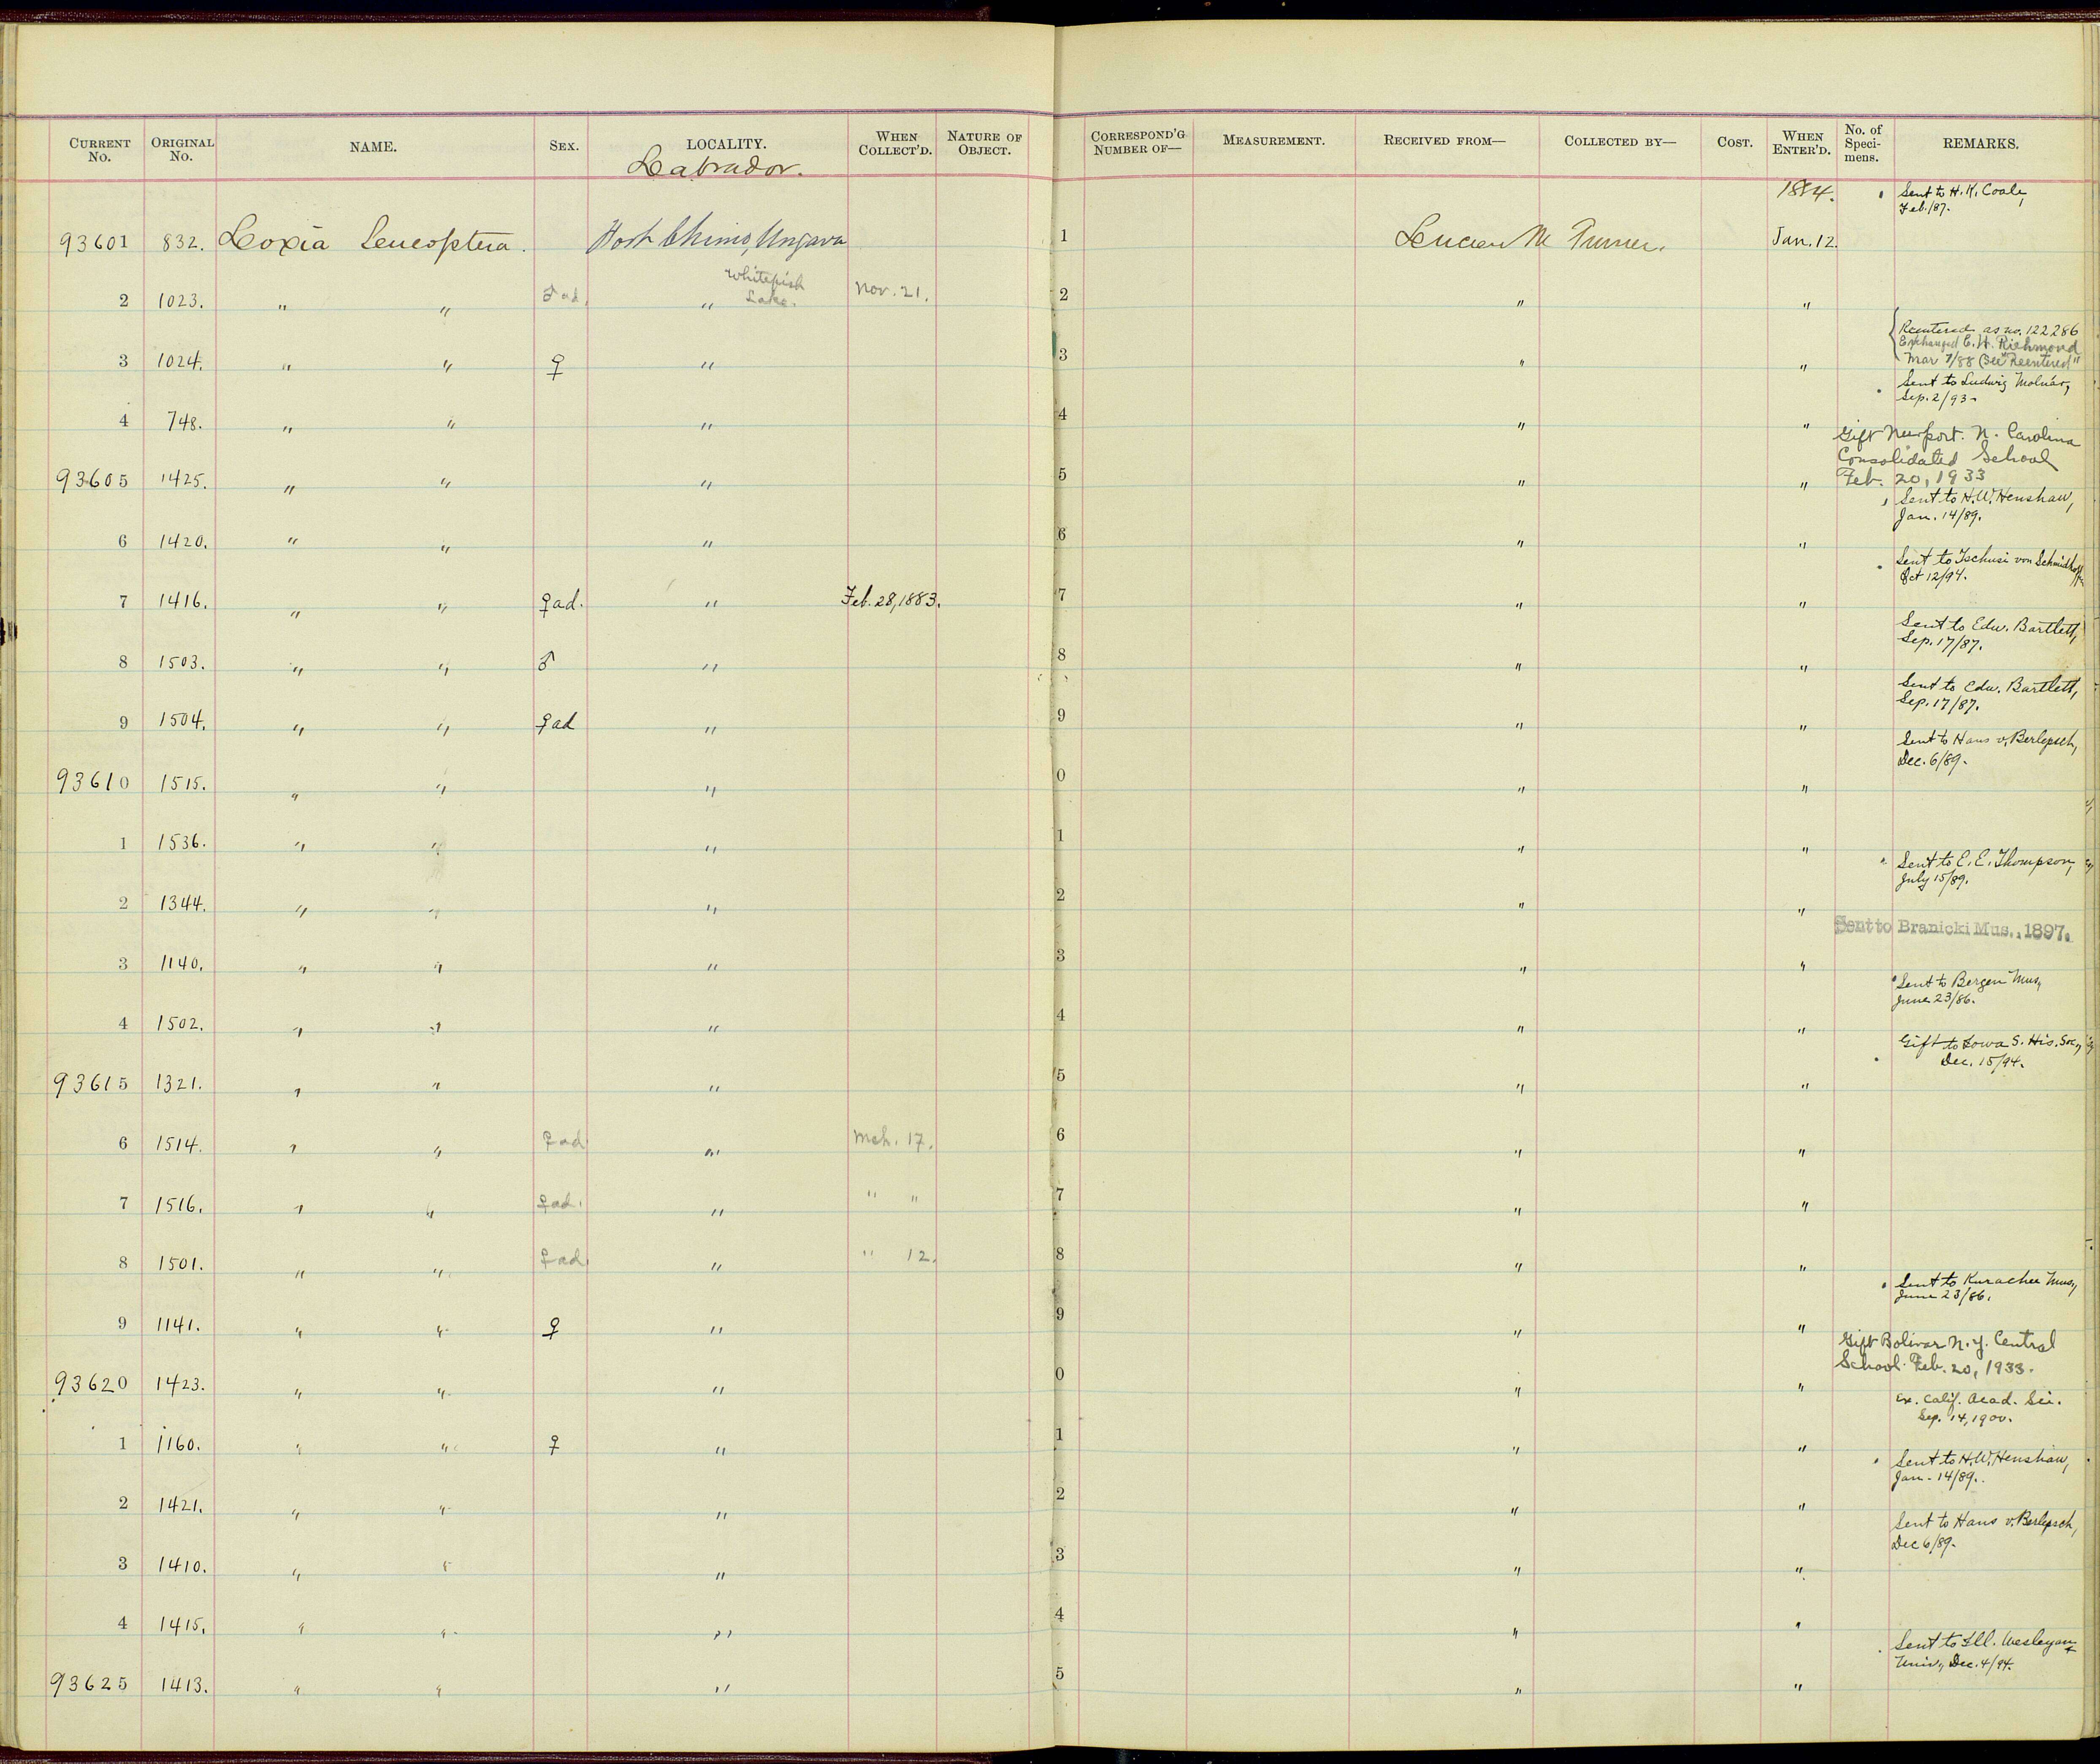 CURRENT No. ORIGINAL No. NAME. SEX. LOCALITY. WHEN COLLECT'D. NATURE OF OBJECT. CORRESPOND'G NUMBER OF— MEASUREMENT. RECEIVED FROM— COLLECTED BY— COST. WHEN ENTER'D. No. of Speci-mens. REMARKS.
Labrador.
1884. Sent to H. K. Coale,
Feb./87.
93601 832. Loxia leucoptera. Fort Chimo, Ungava 1 Lucien M Turner. Jan. 12.
2 1023. " " ♂ ad. " Whitefish Lake. Nov. 21. 2 " "
Reentered as no. 122286
Exchanged C. W. Richmond
Mar 7/88 (See "Reentered"
3 1024. " " ♀ " 3 " "
Sent to Ludwig Molnár,
Sep. 2/93-
4 748. " " " 4 " "
Gift Newport. N. Carolina
Consolidated School
Feb. 20, 1933
93605 1425. " " " 5 " "
Sent to H. W. Henshaw,
Jan. 14/89.
6 1420. " " " 6 " "
Sent to Tschusi von Schmidhoffen
Oct 12/94.
7 1416. " " ♀ ad. " Feb. 28, 1883. 7 " "
Sent to Edw. Bartlett,
Sep. 17/87.
8 1503. " " ♂ " 8 " "
Sent to Edw. Bartlett,
Sep. 17/87.
9 1504. " " ♀ ad " 9 " "
Sent to Hans v. Berlepsch,
Dec. 6/89.
93610 1515. " " " 0 " "
1 1536. " " " 1 " "
Sent to E. E. Thompson,
July 15/89.
2 1344. " " " 2 " "
Sent to Branicki Mus., 1897.
3 1140. " " " 3 " "
Sent to Bergen Mus,
June 23/86.
4 1502. " " " 4 " "
Gift to Iowa S. His. Soc.,
Dec. 15/94.
93615 1321. " " " 5 " "
6 1514. " " ♀ ad " Mch. 17. 6 " "
7 1516. " " ♀ ad. " " " 7 " "
8 1501. " " ♀ ad. " " 12. 8 " "
Sent to Kurachee Mus,
June 23/86.
9 1141. " " ♀ " 9 " "
Gift Bolivar N.Y. Central
School Feb. 20, 1933.
93620 1423. " " " 0 " "
Ex. Calif. Acad. Sci.
Sep. 14, 1900.
1 1160. " " ♀ " 1 " "
Sent to H. W. Henshaw,
Jan. 14/89.
2 1421. " " " 2 " "
Sent to Hans v. Berlepsch,
Dec 6/89.
3 1410. " " " 3 " "
4 1415. " " " 4 " "
Sent to Ill. Wesleyan
Univ., Dec. 4/94.
93625 1413. " " " 5 " "